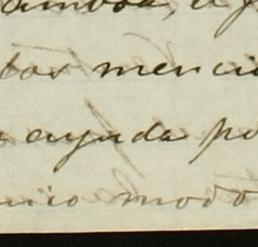 ambos, el
tos menci
ayuda po
nico modo